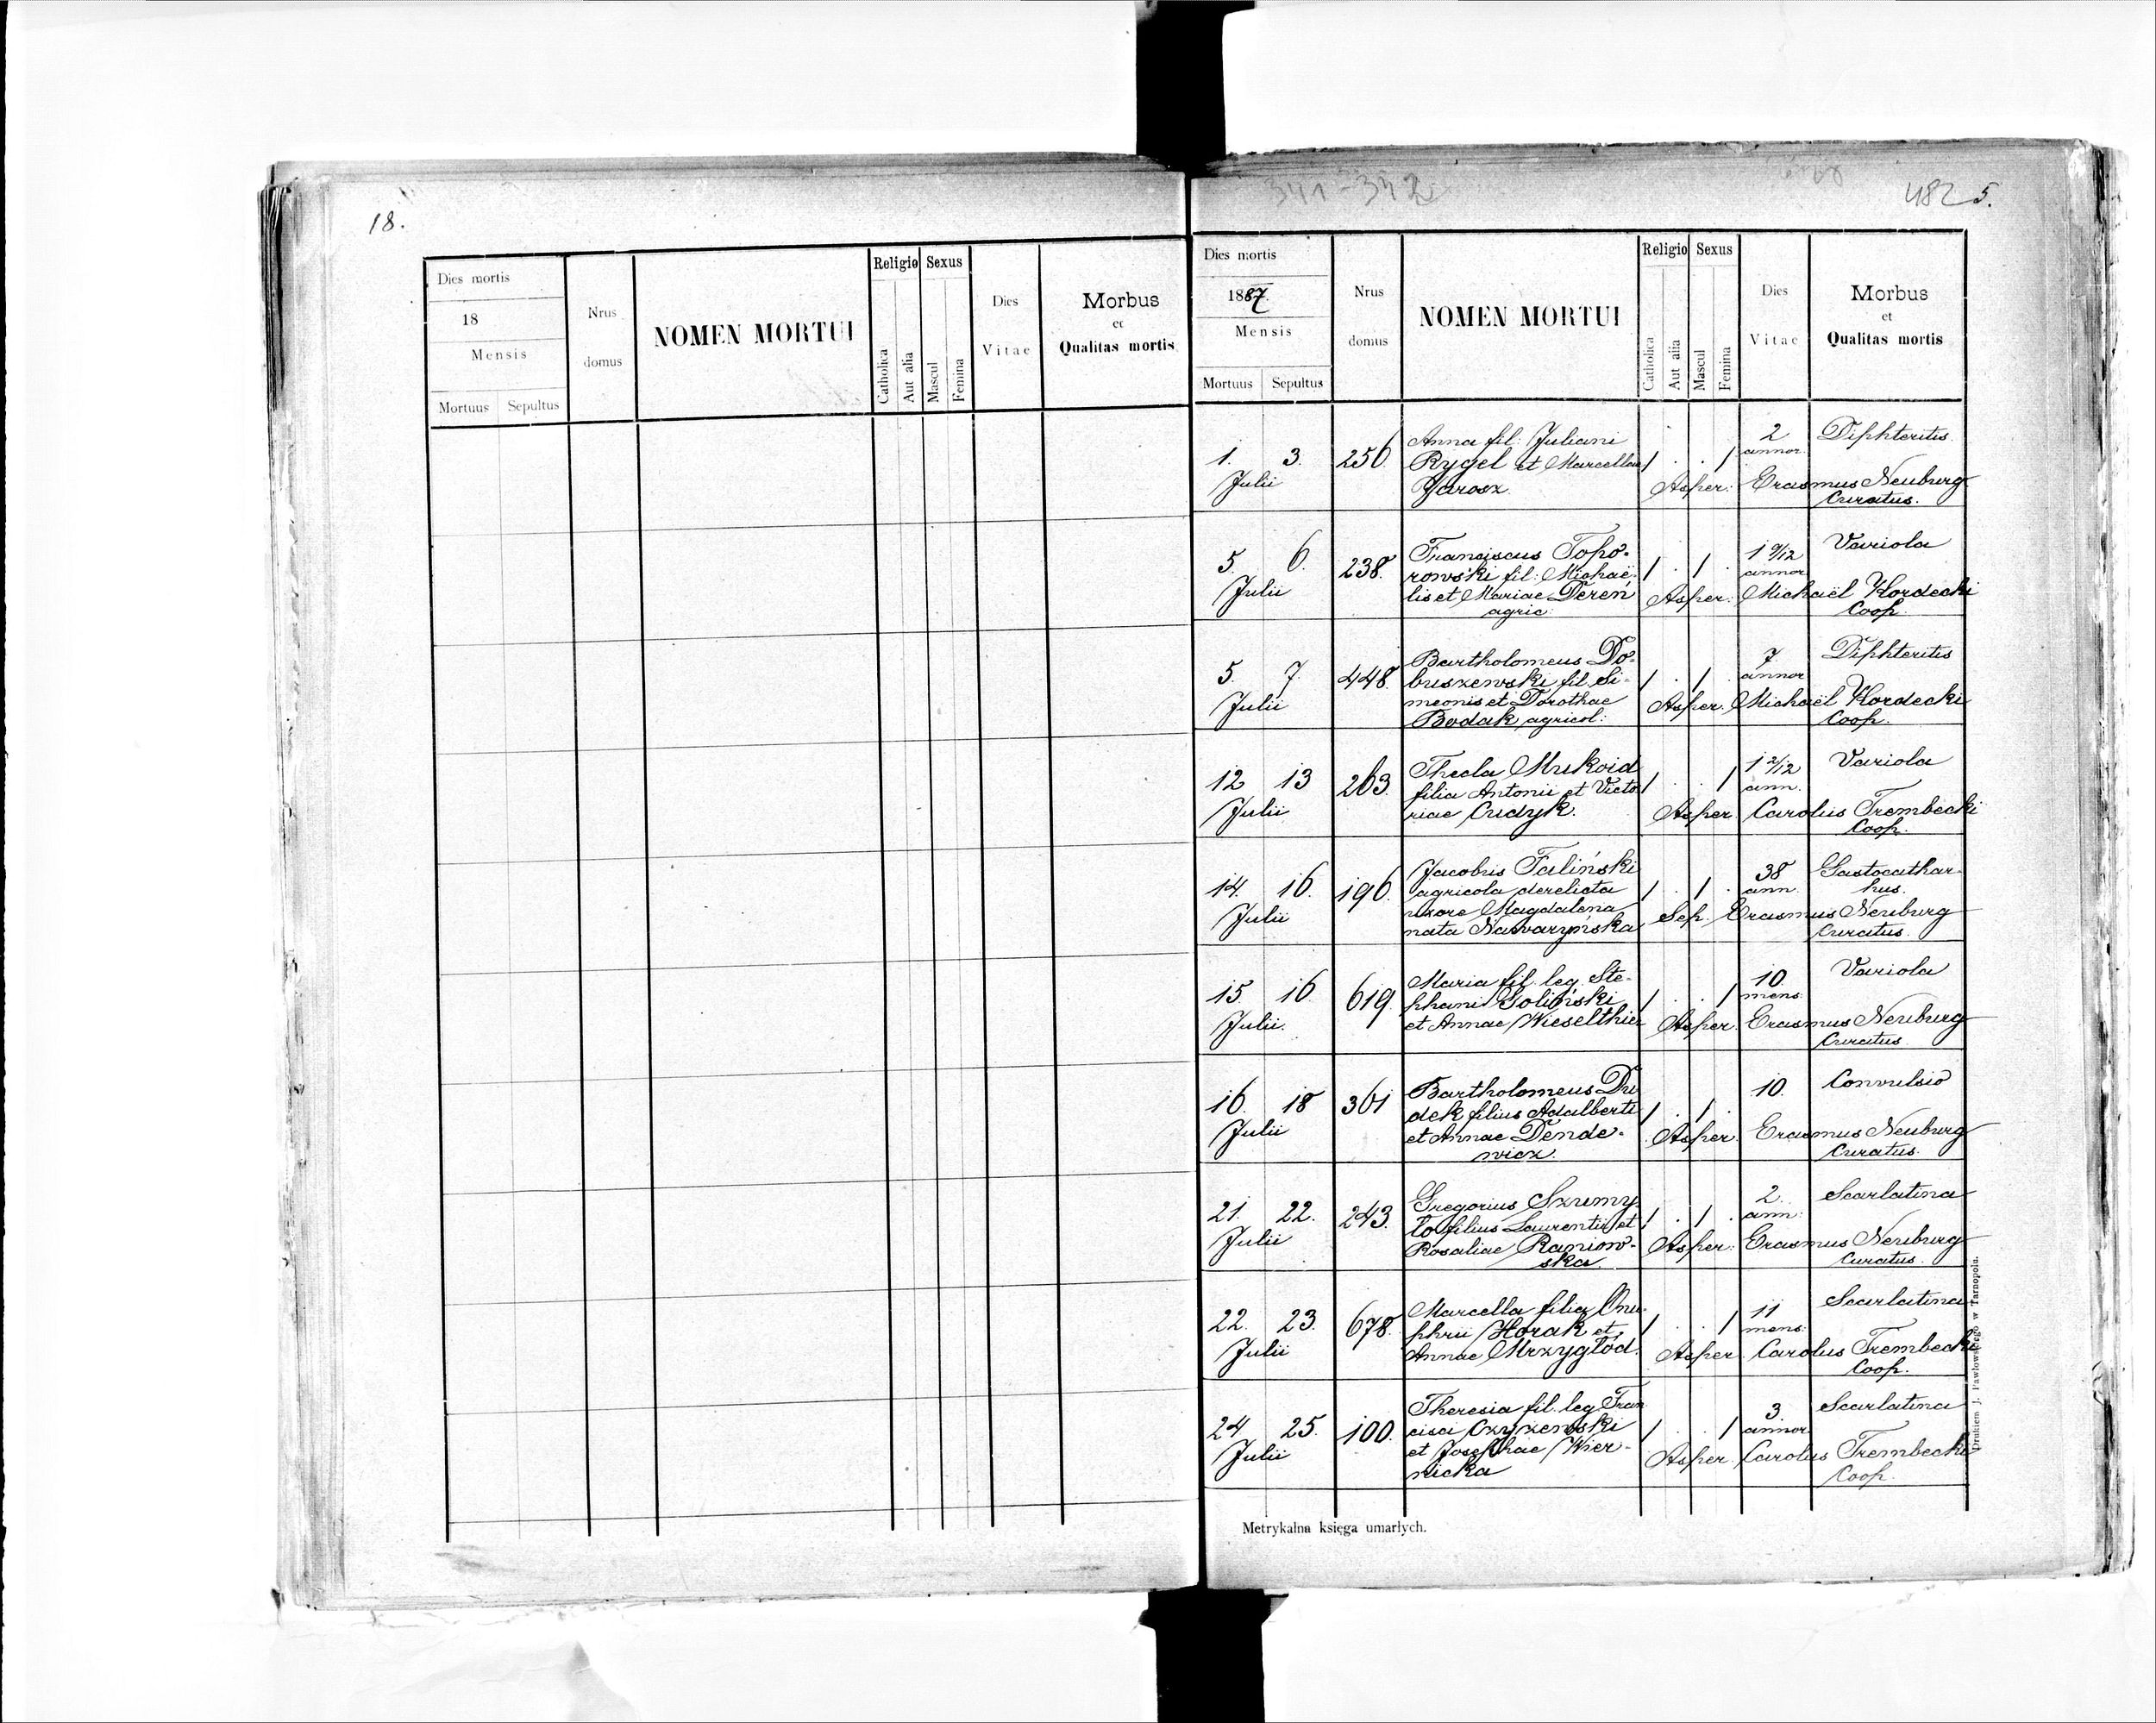 18.
Dies mortis
18
Mensis
Mortuus Sepultus
Nrus
domus
NOMEN MORTUI
Religio
Catholica
Aut alia
Sexus
Mascul
Femina
Dies
Vitae
Morbus
et
Qualitas mortis
341-342
482 5.
Dies mortis
1887.
Mensis
Mortuus Sepultus
Nrus
domus
NOMEN MORTUI
Religio
Catholica
Aut alia
Sexus
Mascul
Femina
Dies
Vitae
Morbus
et
Qualitas mortis
1. 3. 256.
Julii
Anna fil: Juliani
Rygel et Marcellae
Jarosz
/ . . /
2
annor.
Diphteritis
Asper: Erasmus Neuburg
Curatus.
5. 6. 238.
Julii
Franciscus Topo-
rowski fil: Michaë-
lis et Mariae Dereń
agric:
/ . / .
1 9/12
annor
Variola
Asper: Michaël Kordecki
Coop.
5. 7. 448.
Julii
Bartholomeus Do-
buszewski fil. Si-
meonis et Dorothae
Bodak agricol:
/ . / .
7
annor
Diphteritis
Asper. Michaël Kordecki
Coop.
12 13 263.
Julii
Thecla Mukoid
filia Antonii et Victo
riae Cudyk.
/ . . /
1 2/12
ann.
Variola
Asper. Carolus Trembecki
Coop.
14. 16. 196.
Julii
Jacobus Faliński
agricola derelicta
uxore Magdalena
nata Nawaryńska
/ . / .
38
ann.
Gastocathar-
hus.
Sep. Erasmus Neuburg
Curatus.
15. 16 619.
Julii.
Maria fil. leg. Ste-
phani Goliński
et Annae Wieselthier
/ . . /
10.
mens.
Variola
Asper. Erasmus Neuburg
Curatus
16. 18 361
Julii
Bartholomeus Du
dek filius Adalberti
et Annae Dende-
wicz.
/ . / .
10.
Convulsio
Asper. Erasmus Neuburg
Curatus.
21. 22. 243.
Julii
Gregorius Szumy
ło filius Laurentii et
Rosaliae Raniow-
ska.
/ . / .
2.
ann:
Scarlatina
Asper: Erasmus Neuburg
Curatus.
22. 23. 678.
Julii
Marcella filia Onu-
phrii Horak et
Annae Mrzygłód.
/ . . /
11
mens:
Scarlatina
Asper. Carolus Trembecki
Coop.
24 25. 100.
Julii
Theresia fil. leg. Fran
cisci Czyzewski
et Josephae Wier-
nicka
/ . . /
3.
annor.
Scarlatina
Asper. Carolus Trembecki
Coop.
Metrykalna księga umarłych.
Drukiem J. Pawłowskiego w Tarnopolu.